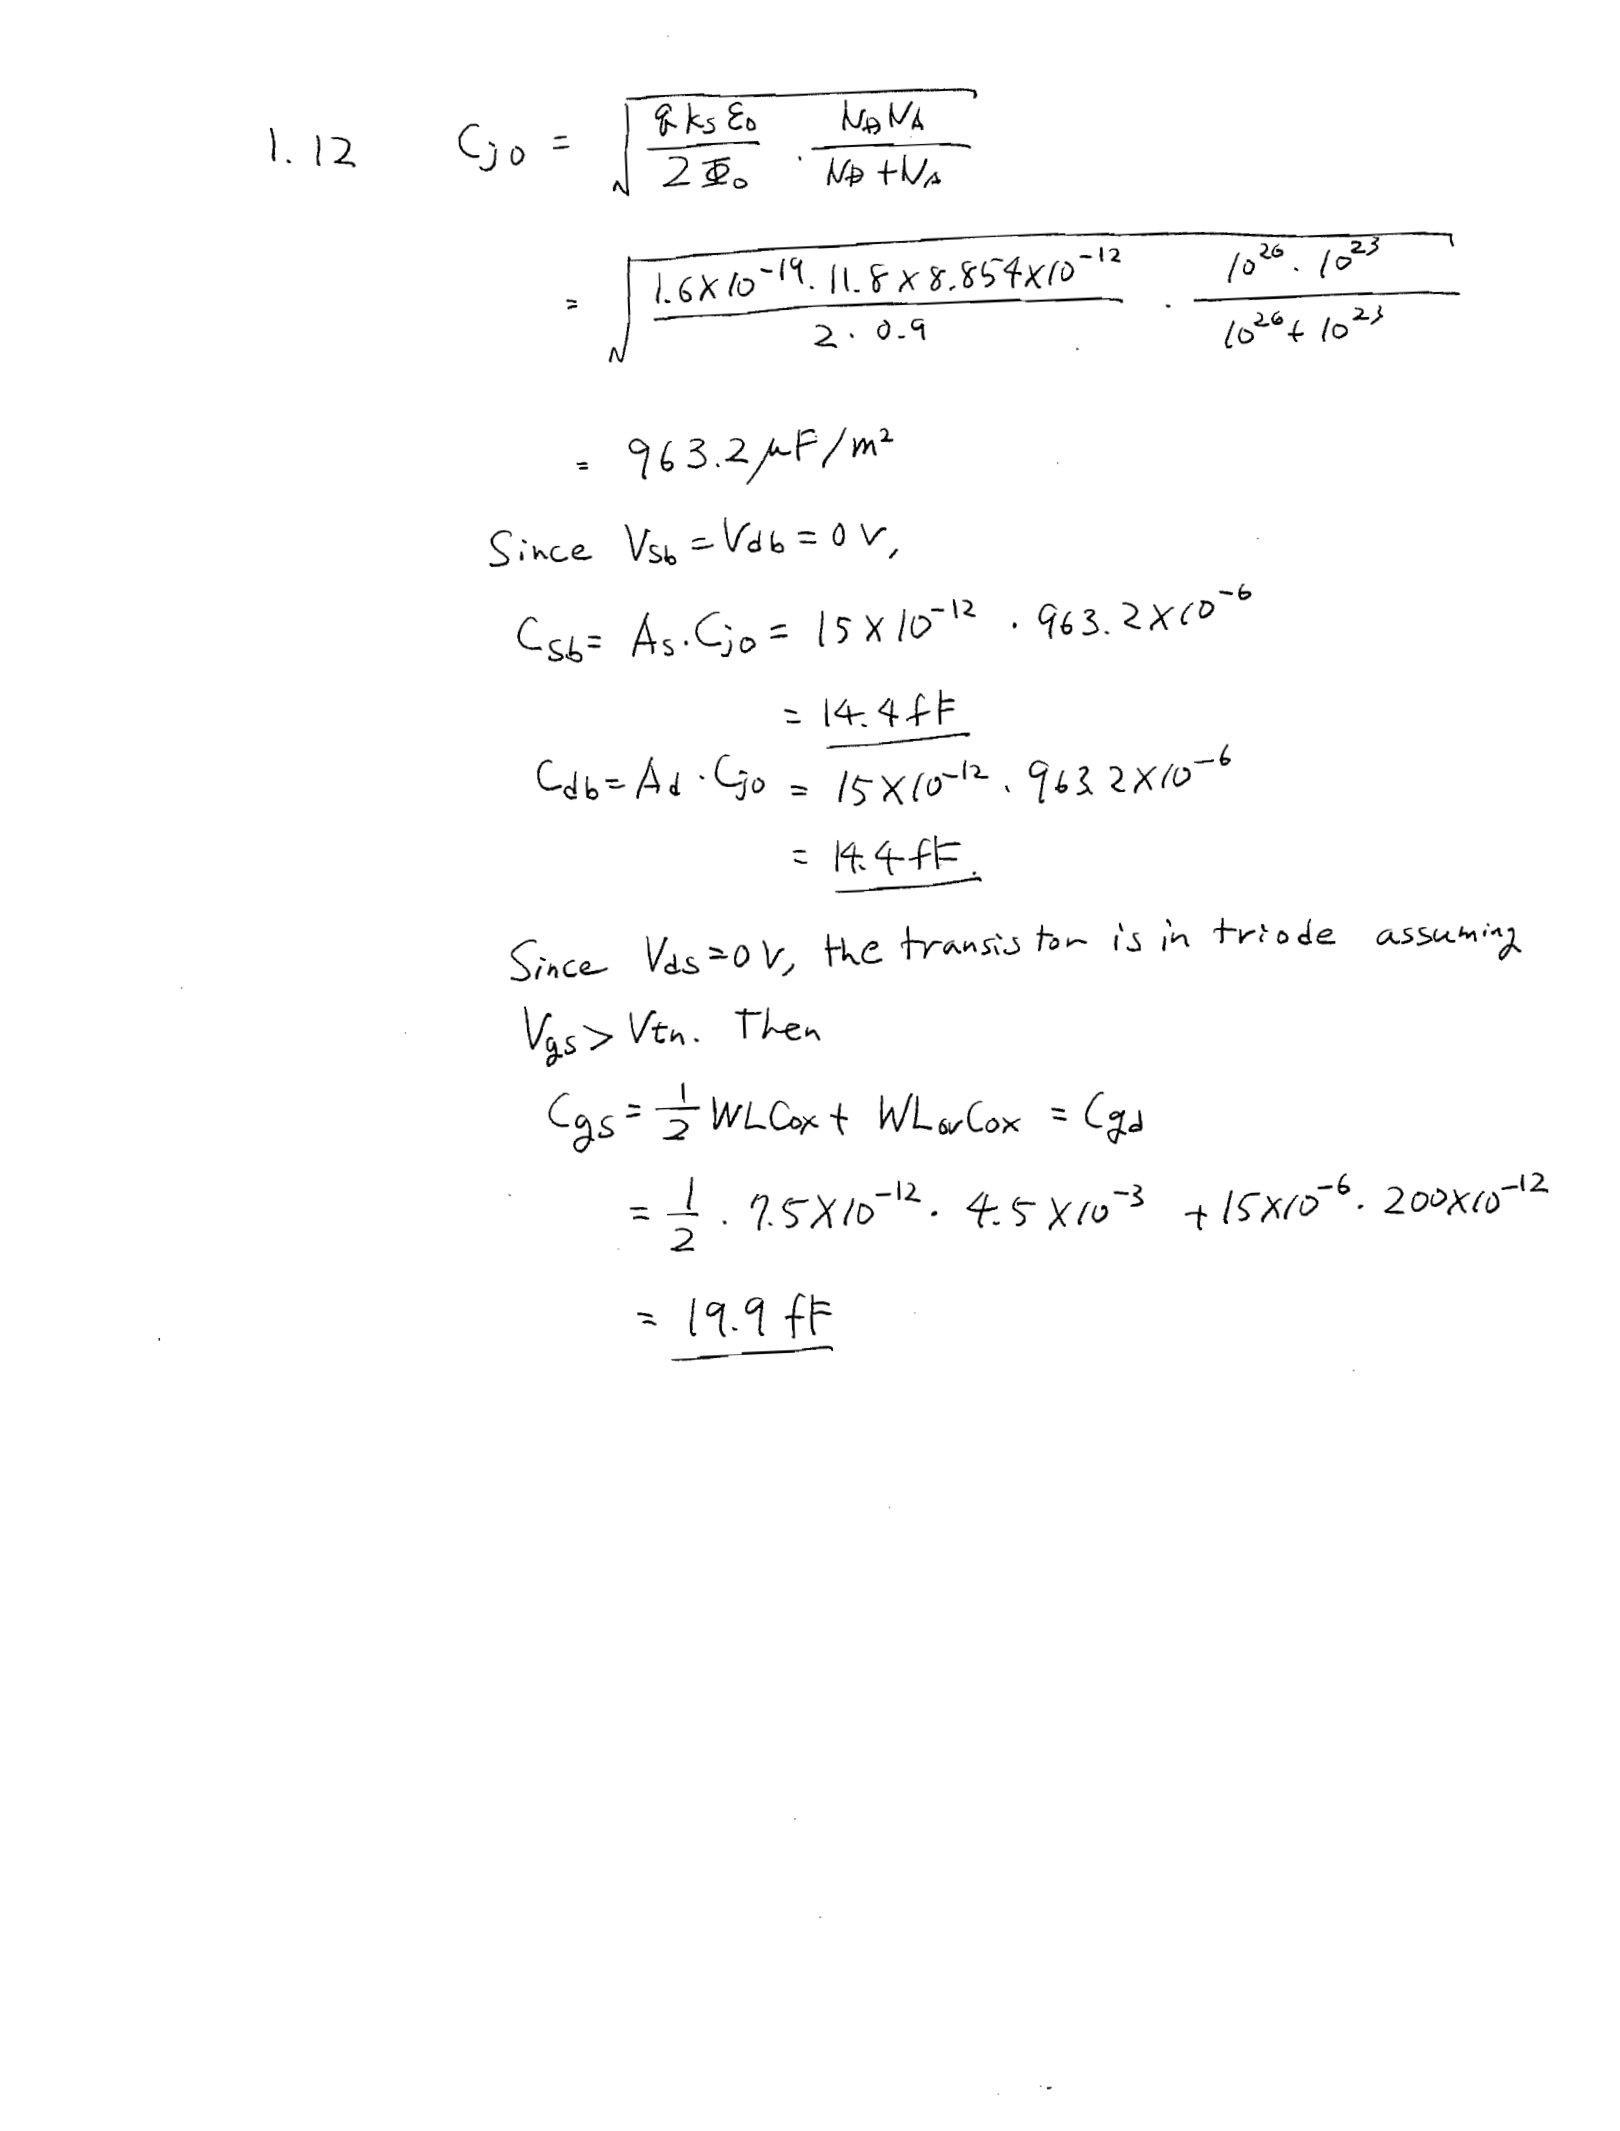 1.12 Cjo = √( q ks ε0 / 2Φ0 · ND NA / ND + NA )
= √( 1.6×10^-19 · 11.8 × 8.854×10^-12 / 2 · 0.9 · 10^26 · 10^23 / 10^26 + 10^23 )
= 963.2 μF/m²
Since Vsb = Vdb = 0 V,
Csb = As·Cjo = 15×10^-12 · 963.2×10^-6
= 14.4 fF
Cdb = Ad·Cjo = 15×10^-12 · 963.2×10^-6
= 14.4 fF.
Since Vds = 0 V, the transistor is in triode assuming
Vgs > Vtn. Then
Cgs = 1/2 WLCox + WLovCox = Cgd
= 1/2 · 7.5×10^-12 · 4.5×10^-3 + 15×10^-6 · 200×10^-12
= 19.9 fF